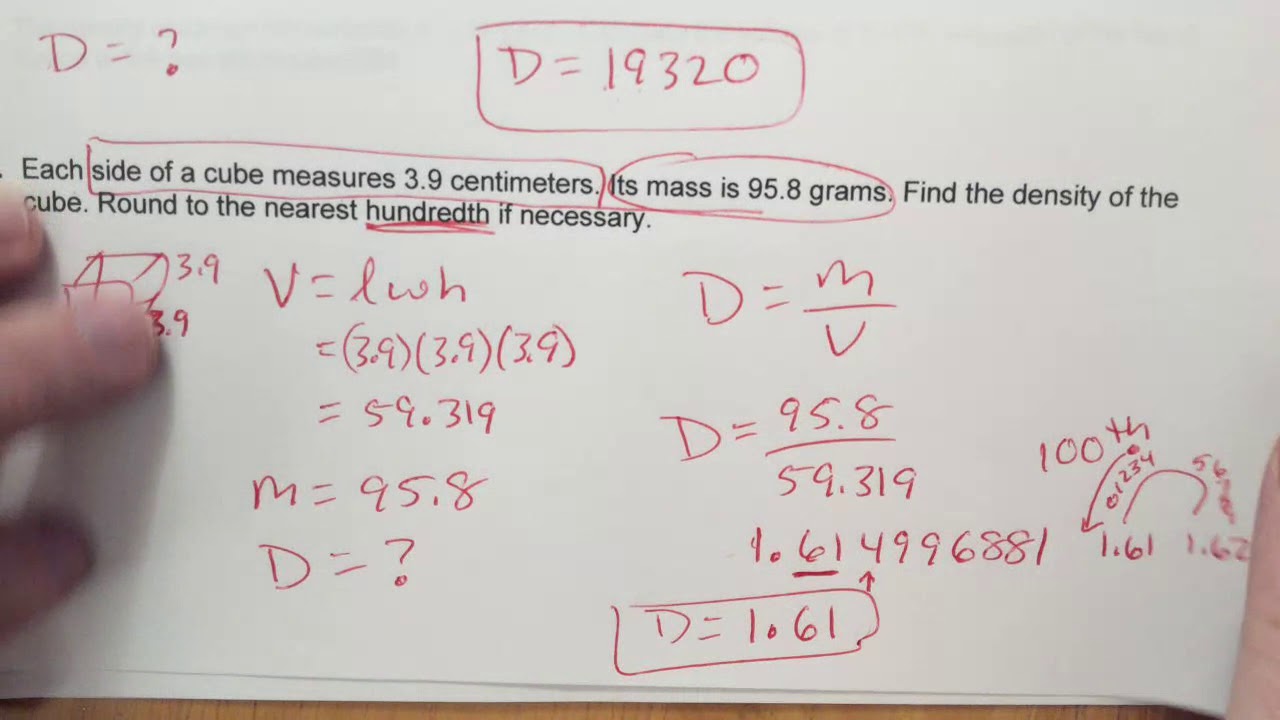 D = ?
D = 19320
Each side of a cube measures 3.9 centimeters. Its mass is 95.8 grams. Find the density of the
cube. Round to the nearest hundredth if necessary.
3.9
3.9
V = lwh
= (3.9)(3.9)(3.9)
= 59.319
m = 95.8
D = ?
D = m
V
D = 95.8
59.319
1.614996881
D = 1.61
100th
01234
56
1.61 1.62